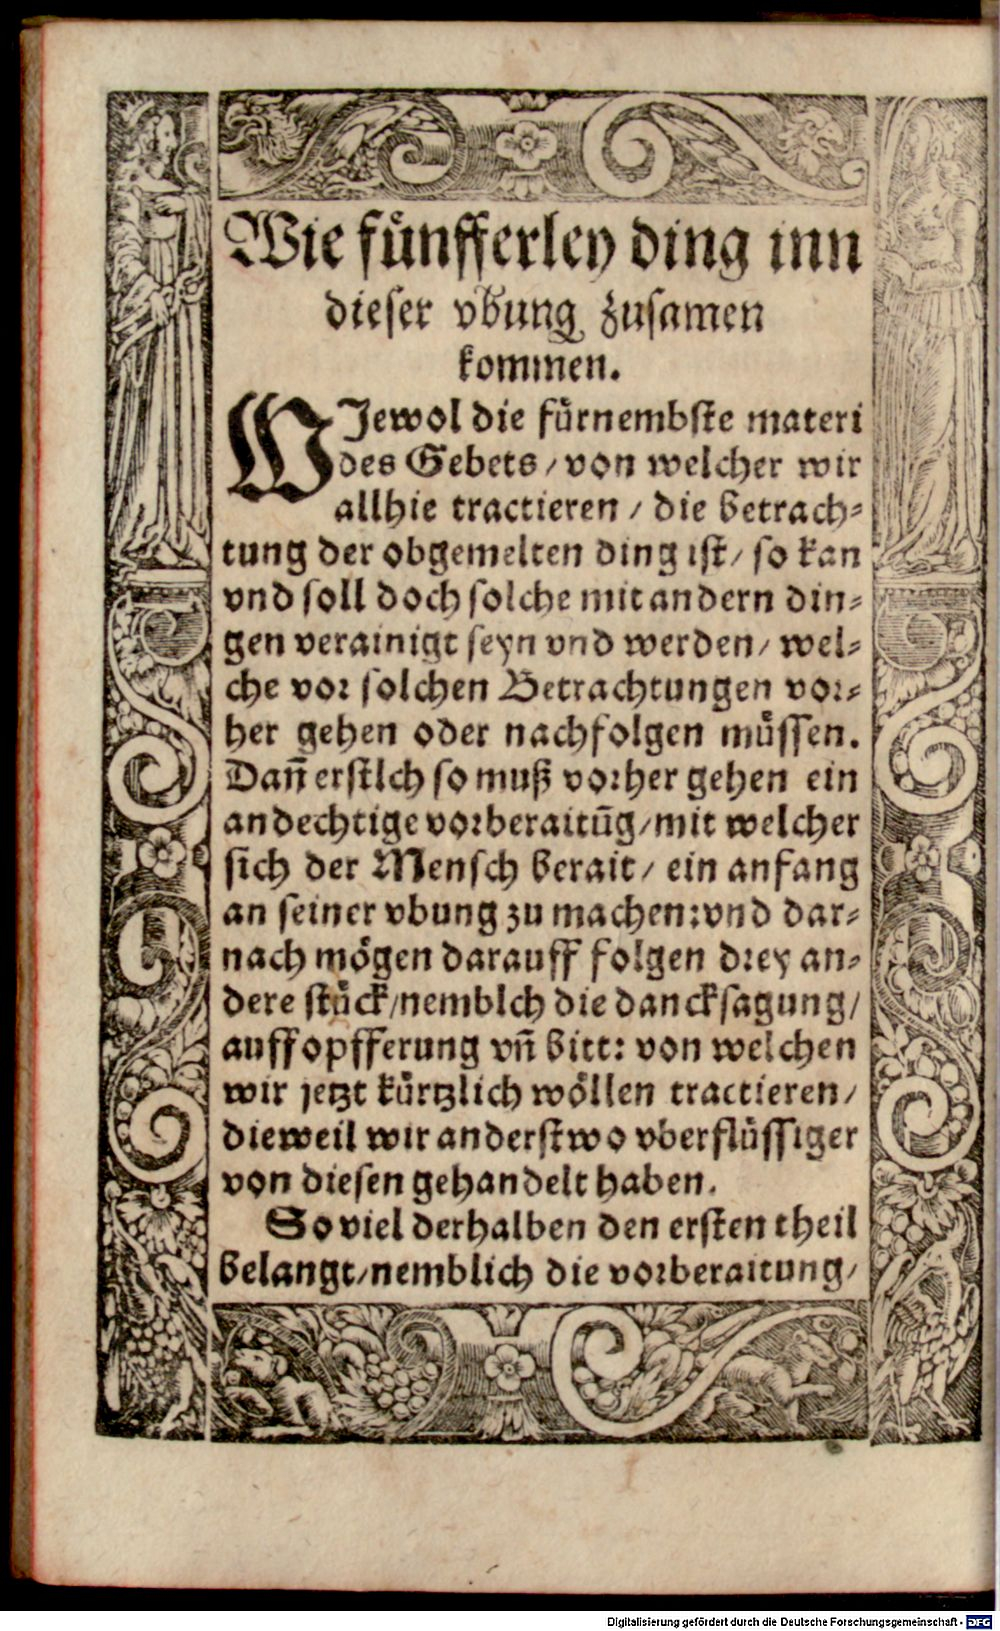 Wie fuͤnfferley ding inn
dieser vbung zusamen
kommen.
WJewol die fuͤrnembste materi
des Gebets / von welcher wir
allhie tractieren / die betrach⸗
tung der obgemelten ding ist / so kan
vnd soll doch solche mit andern din⸗
gen verainigt seyn vnd werden / wel⸗
che vor solchen Betrachtungen vor⸗
her gehen oder nachfolgen muͤssen.
Dañ erstlch so muß vorher gehen ein
andechtige vorberaitũg / mit welcher
sich der Mensch berait / ein anfang
an seiner vbung zu machen: vnd dar⸗
nach moͤgen darauff folgen drey an⸗
dere stuͤck / nemblch die dancksagung /
auffopfferung vñ bitt: von welchen
wir jetzt kuͤrtzlich woͤllen tractieren /
dieweil wir anderstwo vberfluͤssiger
von diesen gehandelt haben.
So viel derhalben den ersten theil
belangt / nemblich die vorberaitung /
Digitalisierung gefördert durch die Deutsche Forschungsgemeinschaft - DFG